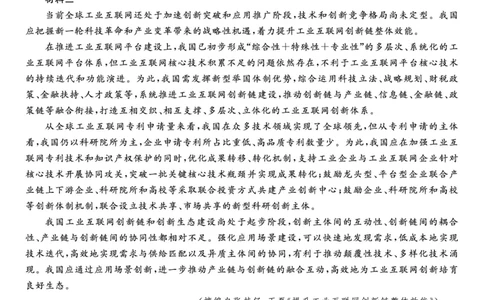 材料二
当前全球工业互联网还处于加速创新突破和应用推广阶段,技术和创新竞争格局尚未定型。我国
应把握新一轮科技革命和产业变革带来的战略性机遇,着力提升工业互联网创新链整体效能。
在推进工业互联网平台建设上,我国已初步形成“综合性+特殊性+专业性”的多层次、系统化的工
业互联网平台体系,但工业互联网核心技术积累不足的问题依然存在,不利于工业互联网平台核心技术
的持续迭代和功能演进。为此,我国需发挥新型举国体制优势,综合运用科技立法、战略规划、财税政
策、金融扶持、人才政策等,系统推进工业互联网创新链建设,推动创新链与产业链、信息链、金融链、政
策链等融合衔接,打造互相交织、相互支撑、多层次、立体化的工业互联网创新体系。
从全球工业互联网专利申请量来看,我国在众多技术领域实现了全球领先,但从专利申请的主体
看,我国仍以科研院所为主,企业申请专利所占比重低、高品质专利数量少。为此,我国应在加强工业互
联网专利技术和知识产权保护的同时,优化成果转移、转化机制,支持工业企业与工业互联网企业针对
核心技术开展协同攻关,突破一批关键核心技术瓶颈并实现成果转化;鼓励龙头型、平台型企业联合产
业链上下游企业、科研院所和高校等采取联合投资方式共建产业创新中心;鼓励企业、科研院所和高校
等创新体制机制,联合设立技术共享、市场共享的新型科研创新主体。
我国工业互联网创新链和创新生态建设尚处于起步阶段,创新主体间的互动性、创新链间的耦合
性、产业链与创新链间的协同性都相对不足。强化应用场景建设,可以快速地发现需求,低成本地实现
技术迭代,高效地实现需求与供给匹配以及异质主体间的协同,有利于推动颠覆性技术、多样化技术涌
现。我国应通过应用场景创新,进一步推动产业链与创新链的融合互动,高效地为工业互联网创新培育
良好生态。